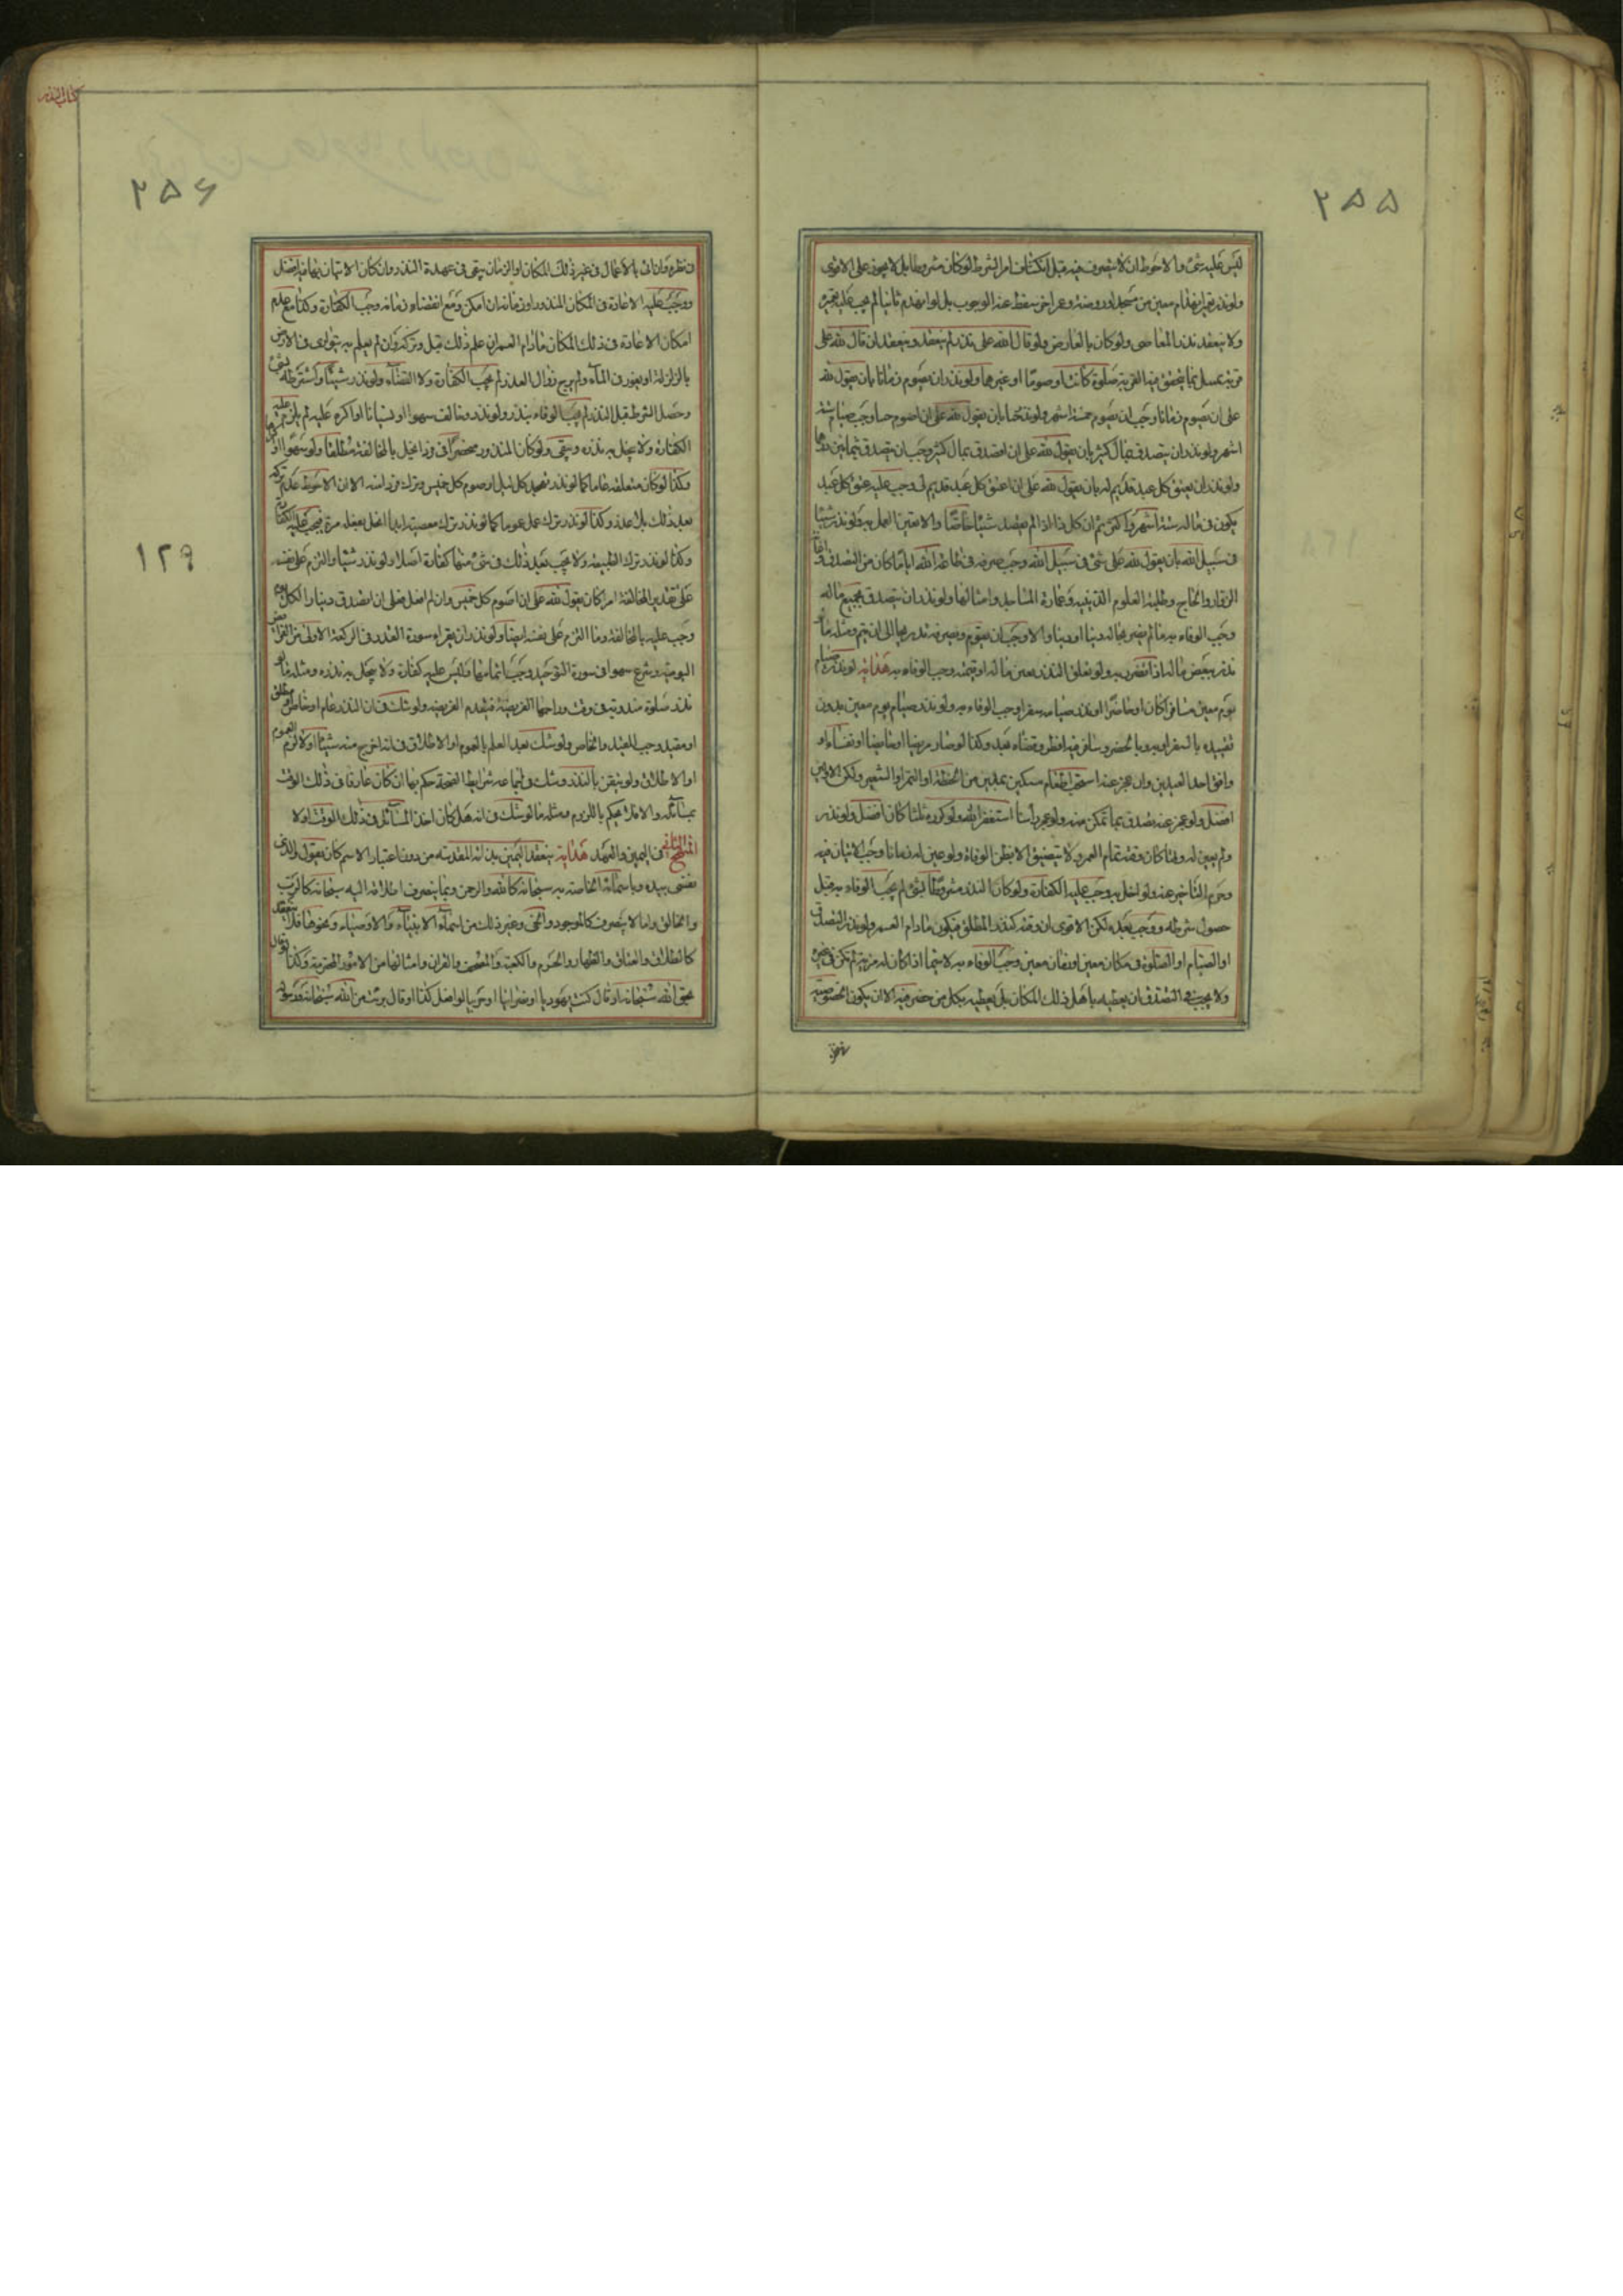 ٢٥٥
ليس عليه شئ والاحوط ان لا يتصرف فيه قبل انكشاف امر الشرط لو كان مشروطا بل لا يجوز على الاقوى
ولو نذر تعمير انهدام معين من مسجد او روضة وعمر اخر سقط عنه الوجوب بل لو انهدم ثانيا لم يجب عليه تعميره
ولا ينعقد نذر المعاصى ولو كان بالعارض ولو قال الله على نذر لم ينعقد وينعقد ان قال لله على
قربة بما يتحقق فيه القربة صلوة كانت او صوما او غيرها ولو نذر ان يصوم زمانا بان يقول لله
على ان اصوم زمانا وجب ان يصوم خمسة اشهر ولو نذر حينا بان يقول لله على ان اصوم حينا وجب صيام ستة
اشهر ولو نذر ان يتصدق بمال كثير بان يقول لله على ان اتصدق بمال كثير وجب ان يتصدق بثمانين درهما
ولو نذر ان يعتق كل عبد قديم له بان يقول لله على ان اعتق كل عبد قديم لى وجب عليه عتق كل عبد
يكون فى ماله ستة اشهر واكثر ثم ان كل هذا اذا لم يقصد شيئا خاصا والا تعين العمل به ولو نذر شيئا
فى سبيل الله بان يقول لله على شئ فى سبيل الله وجب صرفه فى طاعة الله اياما كان من التصدق
الزوار والحاج وطلبة العلوم الدينية وعمارة المساجد وامثالها ولو نذر ان يتصدق بجميع ماله
وجب الوفاء به ما لم يضر بحاله دينا او دنيا والا وجب ان يقوم ويصرفه تدريجا الى ان يتم ومثله ما لو
نذر ببعض ماله اذا تضرر به ولو تعلق النذر بعين ماله او قيمته وجب الوفاء به هداية لو نذر صيام
يوم معين مسافرا كان او حاضرا او نذر صيامه سفرا وجب الوفاء به ولو نذر صيام يوم معين بدون
تقييده بالسفر او به وبالحضر وسافر فيه افطر وقضاه بعد وكذا لو صار مريضا او حايضا او نفساء او
وافق احد العيدين وان عجز عنه استحب اطعام مسكين بمدين من الحنطة او التمر او الشعير ولكن الاولين
افضل ولو عجز عنه تصدق بما تمكن منه ولو عجز راسا استغفر الله ولو كرره ثلثا كان افضل ولو نذر
ولم يعين له وقتا كان وقته تمام العمر ولا يتضيق الا بظن الوفاة ولو عين له زمانا وجب الاتيان فيه
وحرم التاخير عنه ولو اخل به وجب عليه الكفارة ولو كان النذر مشروطا بشئ لم يجب الوفاء به قبل
حصول شرطه ووجب بعده لكن الاقوى ان وقته كنذر المطلق فيكون مادام العمر ولو نذر التصدق
او الصيام او الصلوة فى مكان معين او زمان معين وجب الوفاء به لا سيما اذا كان له مزية لم تكن فى غيره
ولا يجب فى التصدق ان يعطيه باهل ذلك المكان بل يعطيه بكل من حضر فيه الا ان يكون الخصوصية
كتاب النذر
٢٥۶
١٢٩
فى نظره وان اتى بالاعمال فى غير ذلك المكان او الزمان يبقى فى عهدة النذر وان كان الاتيان بها فيه افضل
ووجب عليه الاعادة فى المكان المنذور او زمانه ان امكن ومع انقضاء زمانه وجب الكفارة وكذا مع عدم
امكان الاعادة فى ذلك المكان مادام العمر ان علم ذلك قبل وتركه وان لم يعلم به بتوارى فى الارض
بالزلزلة او بغور فى الماء ولم يرج زوال العذر لم يجب الكفارة ولا القضاء ولو نذر شيئا واشترطه بشئ
وحصل الشرط قبل النذر لم يجب الوفاء بنذره ولو نذر وخالف سهوا او نسيانا او اكره عليه لم يلزم عليه
الكفارة ولا يخل به نذره ويبقى ولو كان المنذور منحصرا فى فرد انحل بالمخالفة مطلقا ولو سهوا
وكذا لو كان متعلقه عاما كما لو نذر تهجد كل ليل او صوم كل خميس وترك فرد منه الا ان الاحوط عدم تركه
بعد ذلك بلا عذر وكذا لو نذر ترك عمل عموما كما لو نذر ترك معصية دائما انحل بفعله مرة فيجب عليه الكفارة
وكذا لو نذر ترك الطبيعة ولا يجب بعد ذلك فى شئ منها كفارة اصلا ولو نذر شيئا والتزم على نفسه
على تقدير المخالفة امرا كان يقول لله على ان اصوم كل خميس وان لم افعل فعلى ان اتصدق دينارا لكل يوم
وجب عليه بالمخالفة وما التزم على نفسه ايضا ولو نذر ان يقراء سورة القدر فى الركعة الاولى من الفرائض
اليومية وشرع سهوا فى سورة التوحيد وجب اتمامها وليس عليه كفارة ولا يخل به نذره ومثله ما لو
نذر صلوة مندوبة فى وقت وزاحمها الفريضة فيقدم الفريضة ولو شك فى ان النذر عام او خاص مطلق
او مقيد وجب المقيد والخاص ولو شك بعد العلم بالعموم او الاطلاق فى انه اخرج منه شيئا اولا لزم العموم
او الاطلاق ولو تيقن بالنذر وشك فى اجتماعه شرايط الصحة حكم بها ان كان عارفا فى ذلك الوقت
بمسائله والا فلا يحكم باللزوم ومثله ما لو شك فى انه هل كان اخذ المسائل فى ذلك الوقت اولا
المنهج الثانى فى اليمين والعهد هداية ينعقد اليمين بذاته المقدسة من دون اعتبار الاسم كان يقول والذى
نفسى بيده وباسمائه الخاصة به سبحانه كالله والرحمن وبما ينصرف اطلاقه اليه سبحانه كالرب
والخالق واما لا ينصرف كالموجود والحى وغير ذلك من اسماء الانبياء والاوصياء ونحوها فلا ينعقد
كالطلاق والعتاق والظهار والحرم والكعبة والمصحف والقران وامثالها من الامور المحترمة وكذا لو قال
بحق الله سبحانه او قال كنت يهوديا او نصرانيا او حربيا لو افعل كذا او قال برئت من الله سبحانه